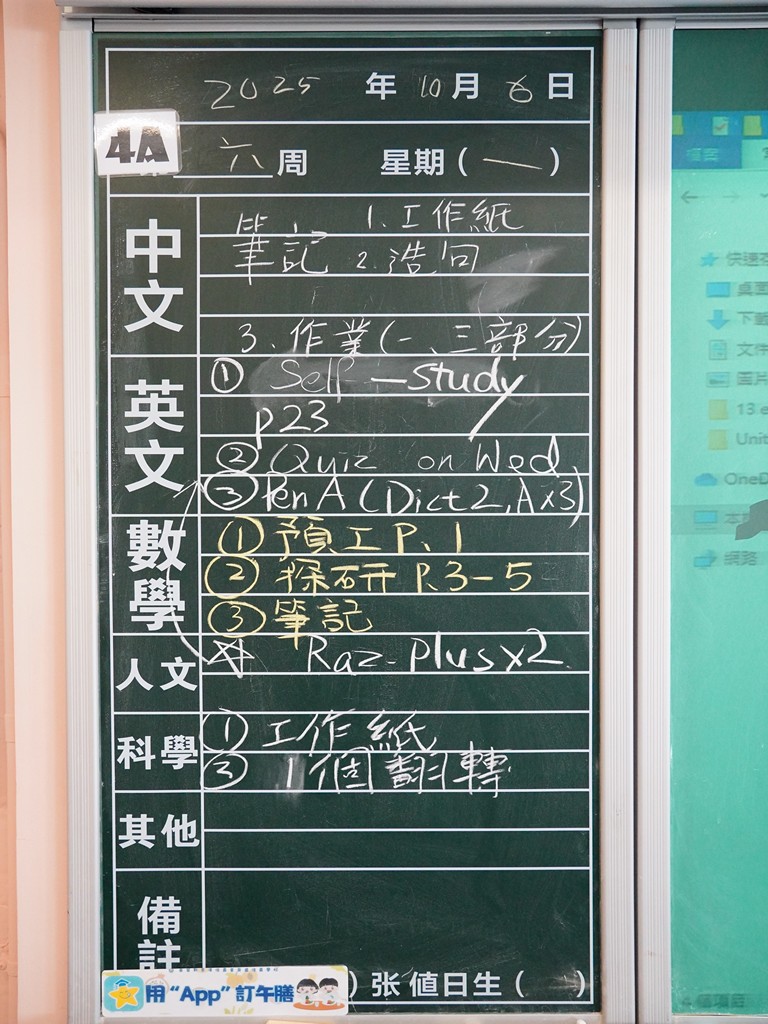 2025 年 10 月 6 日
4A
六 周 星期 ( 一 )
中文
筆記 1. 工作紙
2. 造句
3. 作業(一、三部分)
英文
① Self-study
p23
② Quiz on Wed
③ Pen A (Dict 2, A x3)
數學
① 預工 P. 1
② 探研 P. 3-5
③ 筆記
人文
☆ Raz-Plus x2
科學
① 工作紙
③ 1個翻轉
其他
備註
) 张 値日生 ( )
用 “App” 訂午膳
檔案
快速存
桌面
下載
文件
圖片
13 e
Unit
OneD
本
網路
4 個項目